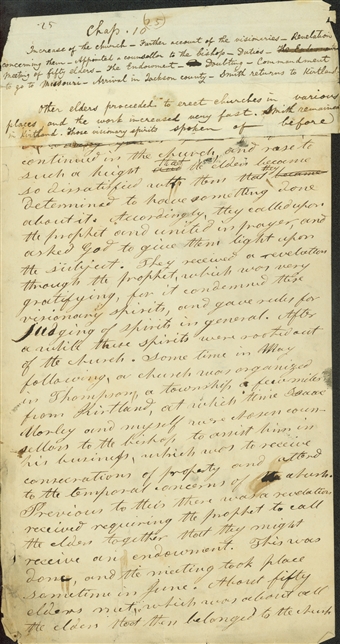 25
Chap. 10
Increase of the church – Further account of the visioneries – Revelation
concerning them – Appointed a counsellor to the bishop – Duties –
Meeting of fifty elders – The Endowment – Doubting – Commandment
to go to Missouri – Arrival in Jackson county – Smith returns to Kirtland.
Other elders proceeded to erect churches in various
places, and the work increased very fast. Smith remained
in Kirtland. Those visionery spirits spoken of before
continued in the church, and rose to
such a hight that the elders became
so dissatisfied with them that they
determined to have something done
about it. Accordingly, they called upon
the prophet and united in prayer, and
asked God to give them light upon
the subject. They received a revelation
through the prophet, which was very
gratifying, for it condemned these
visionary spirits, and gave rules for
Judging of spirits in general. After
a while these spirits were rooted out
of the church. Some time in May
following, a church was organized
in Thompson, a township a few miles
from Kirtland, at which time Isaac
Morley and myself were chosen coun-
sellors to the bishop to assist him in
his business, which was to receive
consecrations of property and attend
to the temporal concerns of the church.
Previous to this there was a revelation
received requiring the prophet to call
the elders together that they might
receive an endowment. This was
done, and the meeting took place
sometime in June. About fifty
elders met, which was about all
the elders that then belonged to the church